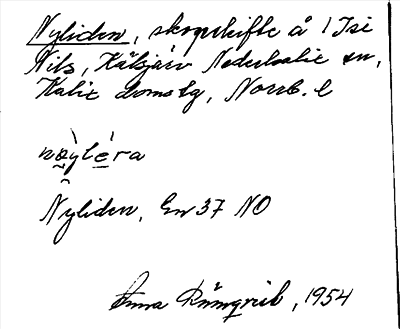 Nyliden, skogskifte å 1 Isi
Nils, Kälsjärv Nederkalix sn,
Kalix domsg, Norrb. l
nøylèra
Nyliden, Ew 37 NO
Anna Rönnqvist, 1954